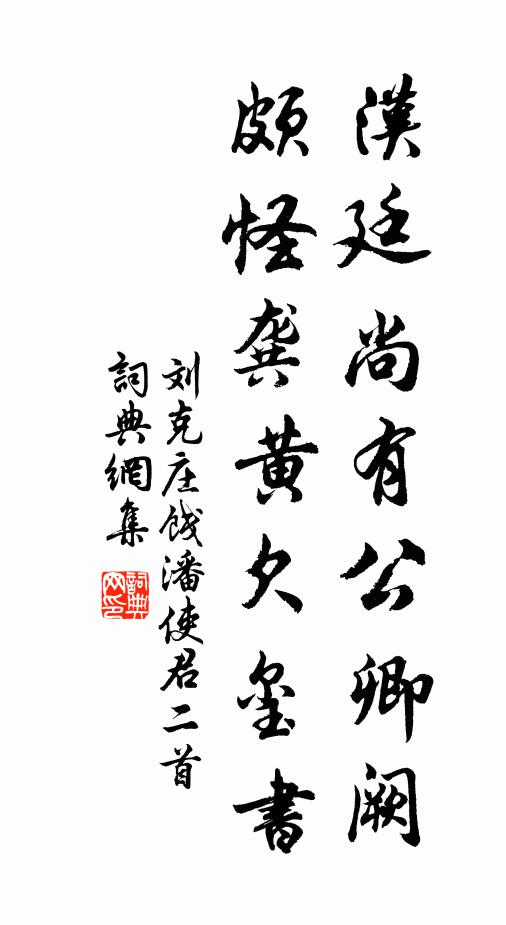 漢廷尚有公卿闕
頗怪龔黃欠璽書
刘克庄餞潘使君二首
詞典網集
詞典网印